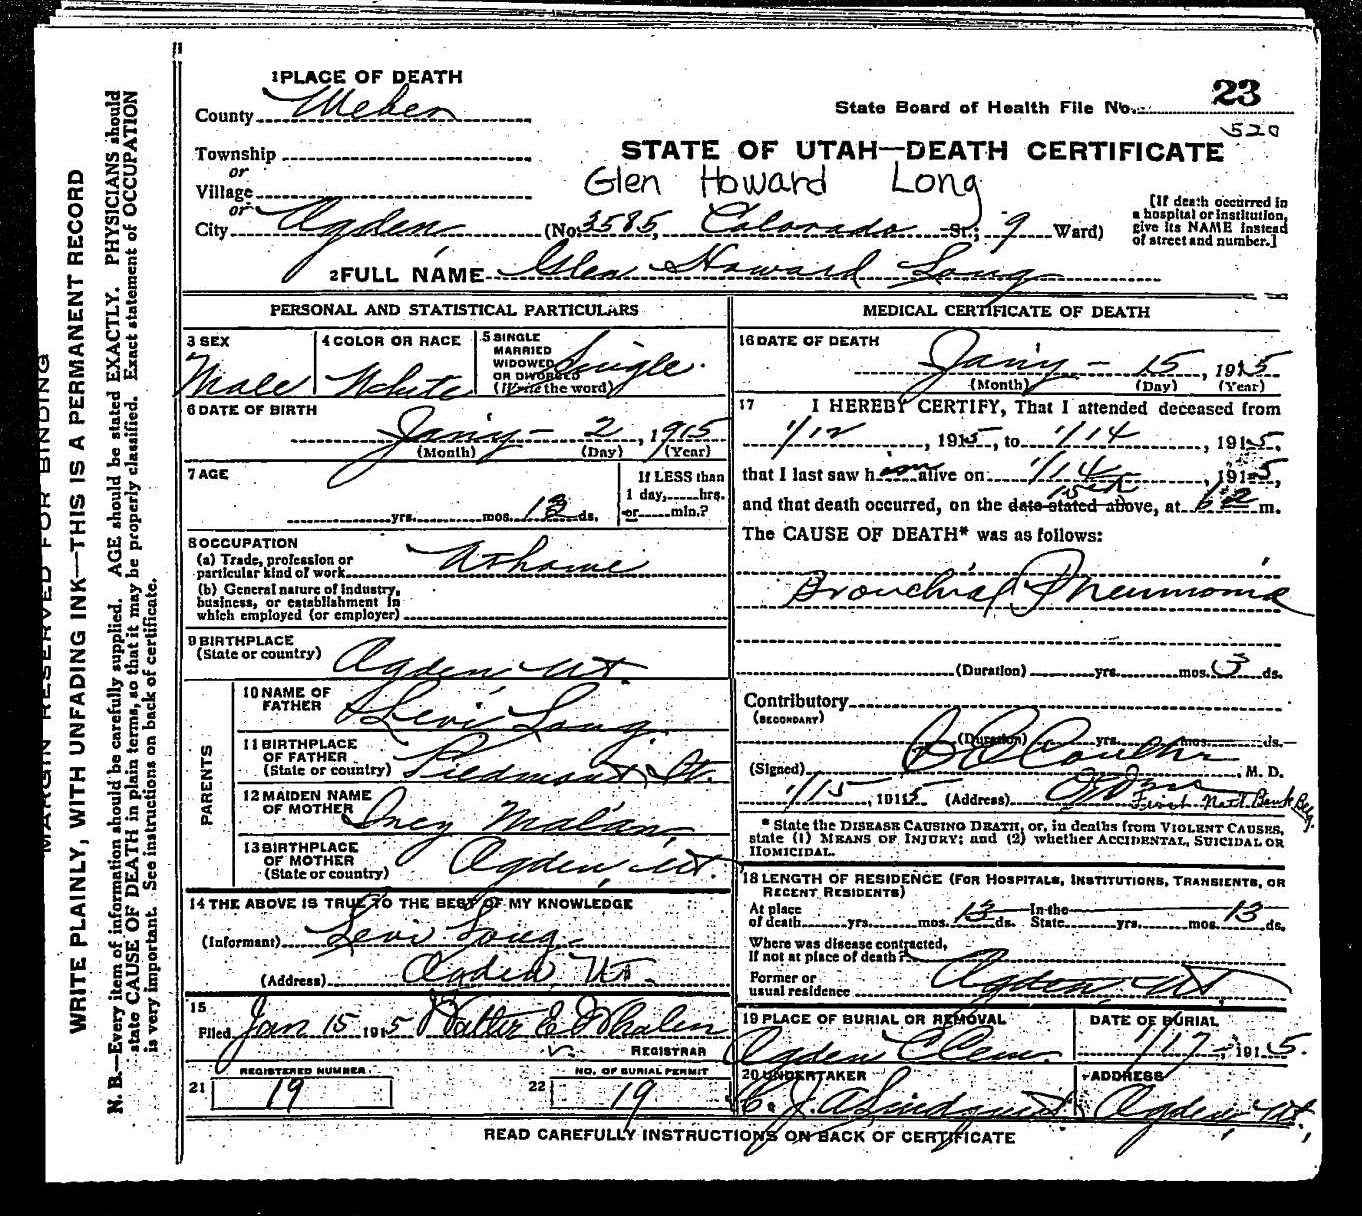 1 PLACE OF DEATH
County Weber
State Board of Health File No. 23
520
Township
or
Village
or
City Ogden (No. 3585, Colorado St.; 9 Ward)
STATE OF UTAH—DEATH CERTIFICATE
Glen Howard Long
[If death occurred in
a hospital or institution,
give its NAME instead
of street and number.]
2 FULL NAME Glen Howard Long
PERSONAL AND STATISTICAL PARTICULARS
3 SEX
Male
4 COLOR OR RACE
White
5 SINGLE
MARRIED
WIDOWED
OR DIVORCED
(Write the word)
Single.
6 DATE OF BIRTH
Jan'y - 2, 1915
(Month) (Day) (Year)
7 AGE
yrs. mos. 13 ds.
If LESS than
1 day, hrs.
or min.?
8 OCCUPATION
(a) Trade, profession or
particular kind of work At home
(b) General nature of industry,
business, or establishment in
which employed (or employer)
9 BIRTHPLACE
(State or country) Ogden Ut.
PARENTS
10 NAME OF
FATHER Levi Long.
11 BIRTHPLACE
OF FATHER
(State or country) Piedmont,
12 MAIDEN NAME
OF MOTHER Inez Malan
13 BIRTHPLACE
OF MOTHER
(State or country) Ogden, Ut.
14 THE ABOVE IS TRUE TO THE BEST OF MY KNOWLEDGE
(Informant) Levi Long
(Address) Ogden, Ut.
15
Filed Jan 15 1915 Walter E Whalen
REGISTRAR
REGISTERED NUMBER
21 19
NO. OF BURIAL PERMIT
22 19
MEDICAL CERTIFICATE OF DEATH
16 DATE OF DEATH
Jan'y - 15, 1915
(Month) (Day) (Year)
17 I HEREBY CERTIFY, That I attended deceased from
1/12, 1915, to 1/14, 1915.
that I last saw him alive on 1/14, 1915,
15th
and that death occurred, on the date stated above, at 6 a m.
The CAUSE OF DEATH* was as follows:
Bronchial Pneumonia
(Duration) yrs. mos. 3 ds.
Contributory
(SECONDARY)
(Duration) yrs. mos. ds.
(Signed) M. D.
1/15, 1915 (Address)
First Nat'l Bank Bldg.
* State the DISEASE CAUSING DEATH, or, in deaths from VIOLENT CAUSES,
state (1) MEANS OF INJURY; and (2) whether ACCIDENTAL, SUICIDAL OR
HOMICIDAL.
18 LENGTH OF RESIDENCE (FOR HOSPITALS, INSTITUTIONS, TRANSIENTS, OR
RECENT RESIDENTS)
At place In the
of death yrs. mos. 13 ds. State yrs. mos. 13 ds.
Where was disease contracted,
If not at place of death?
Former or
usual residence Ogden, Ut
19 PLACE OF BURIAL OR REMOVAL
Ogden Cem.
DATE OF BURIAL
1/17, 1915.
20 UNDERTAKER
C. J. A Lindquist
ADDRESS
Ogden, Ut.,
READ CAREFULLY INSTRUCTIONS ON BACK OF CERTIFICATE
MARGIN RESERVED FOR BINDING
WRITE PLAINLY, WITH UNFADING INK—THIS IS A PERMANENT RECORD
N. B.—Every item of information should be carefully supplied. AGE should be stated EXACTLY. PHYSICIANS should
state CAUSE OF DEATH in plain terms, so that it may be properly classified. Exact statement of OCCUPATION
is very important. See instructions on back of certificate.